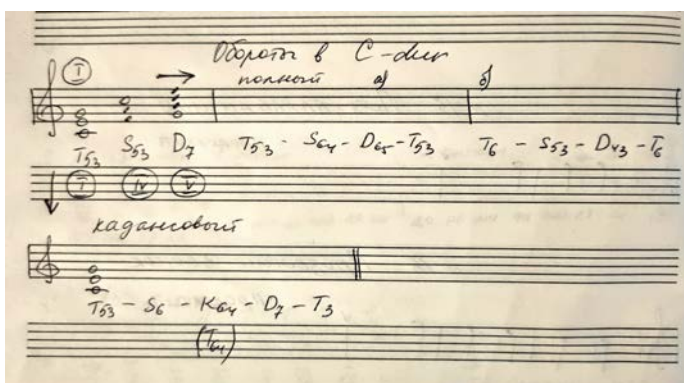 Обороты в C-dur
I полный а) б)
T53 S53 D7 T53 - S64 - D65 - T53 T6 - S53 - D43 - T6
I IV V
кадансовый
T53 - S6 - K64 - D7 - T3
(T64)